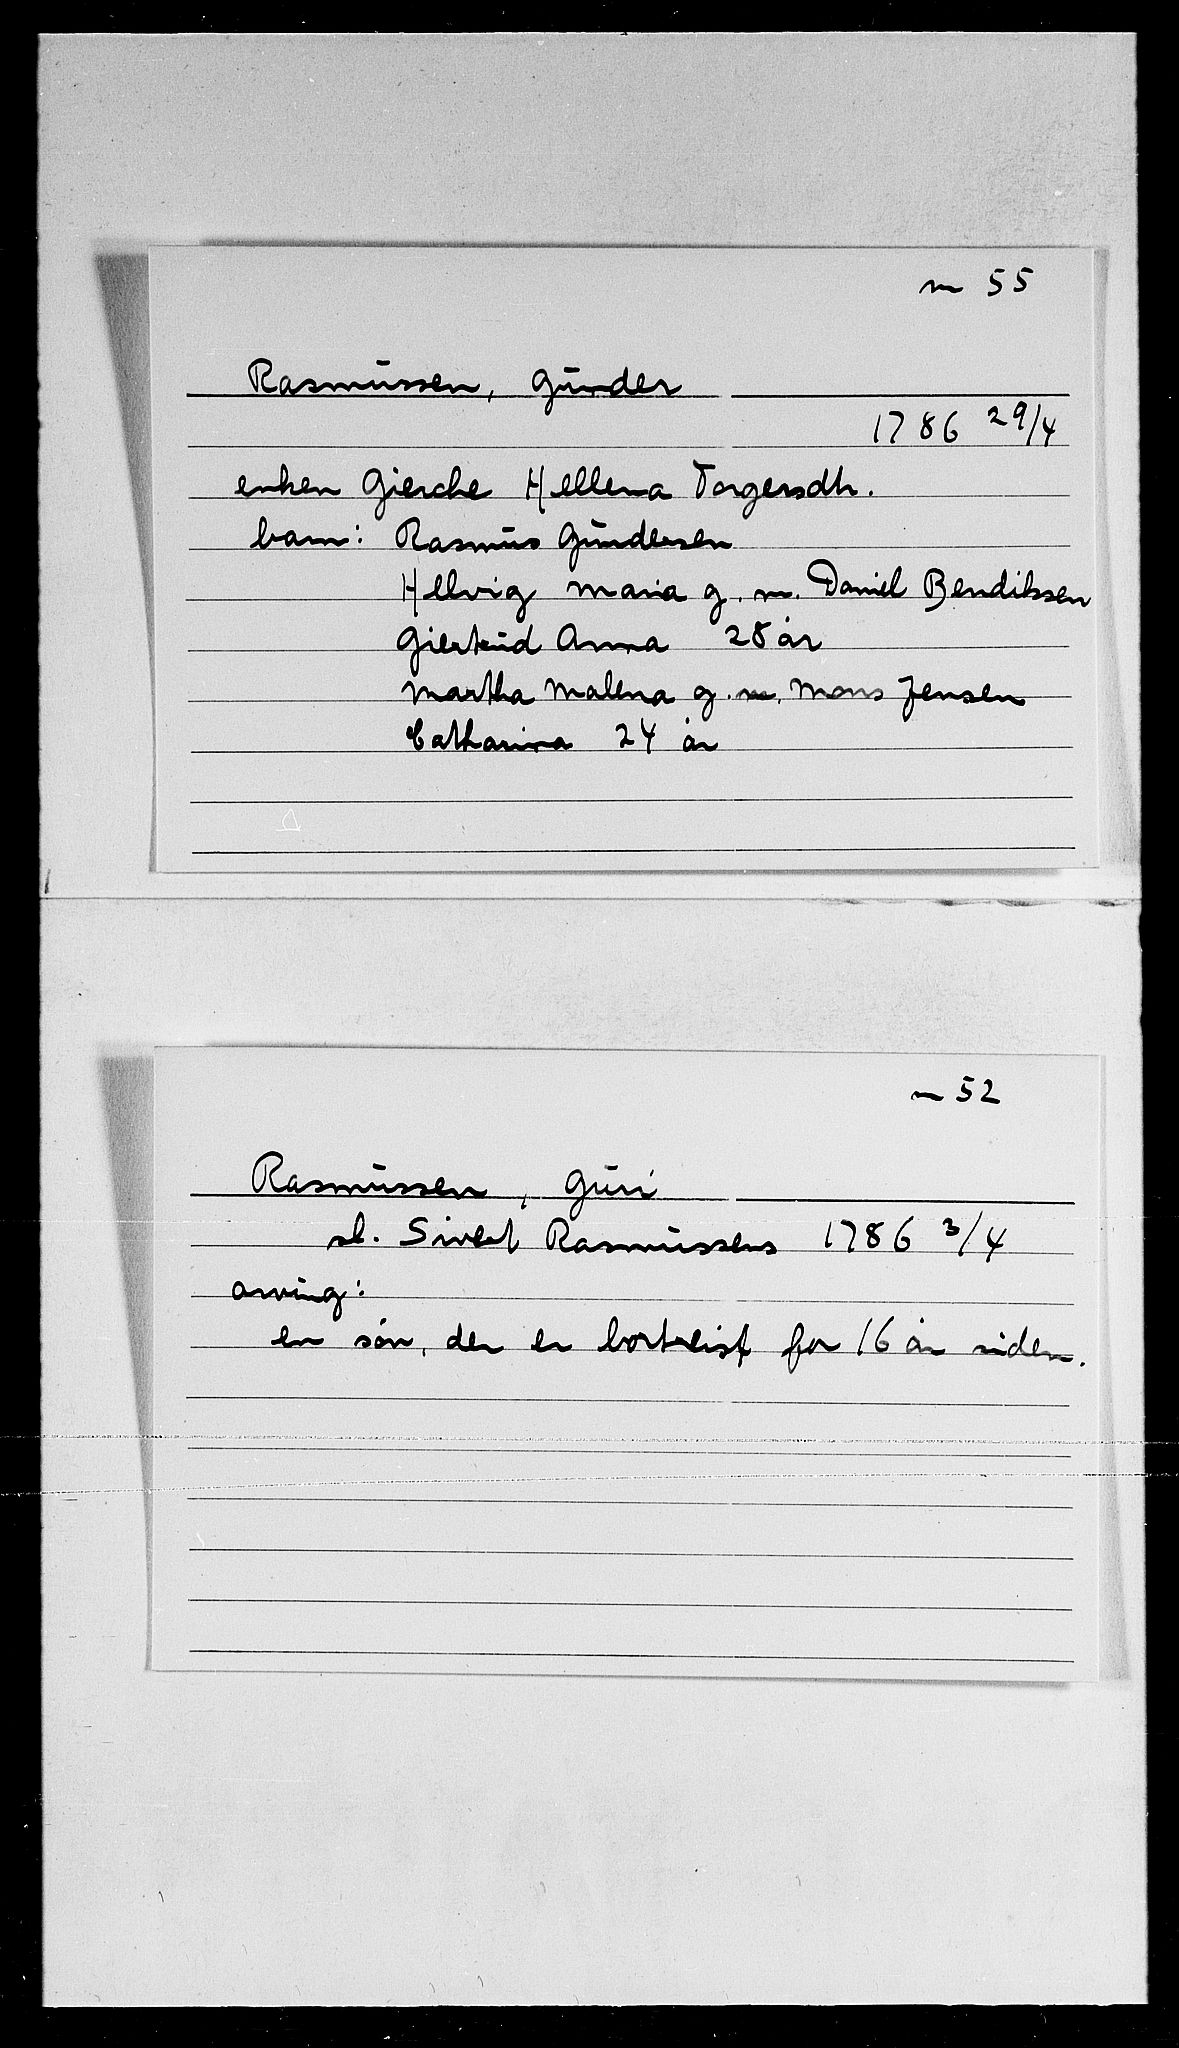 m 55
Rasmüssen, Günder
1786 29/4
enken Gierche Hellena Torgersdtr.
barn: Rasmüs Gündersen
Hellvig Maria g. m. Daniel Bendiksen
Giertrüd Anna 28 år
Martha Malena g. m. Mons Jensen
Catharina 24 år
m 52
Rasmüssen, Güri
sl. Sivert Rasmüssens 1786 3/4
arving:
en sön, der er bortreist for 16 år siden.